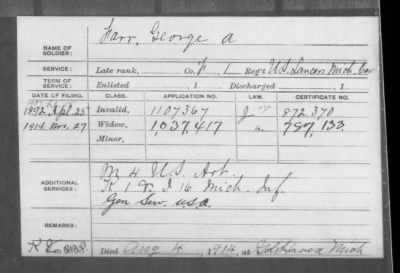 Farr, George A
NAME OF SOLDIER:
SERVICE: Late rank, Co. F, 1 Reg't U.S. Lancers Mich. Cav
TERM OF SERVICE: Enlisted 1 Discharged , 1
DATE OF FILING. CLASS. APPLICATION NO. LAW. CERTIFICATE NO.
1892 Sept. 25 Invalid, 1107367 J 872.370
1914 Nov. 27 Widow, 1,037.417 797,133
Minor,
ADDITIONAL SERVICES:
M 4 U.S. Art.
K 1 & I 16 Mich. Inf.
Gen Serv. U.S.A.
REMARKS:
Died Aug 4, 1914, at Mich